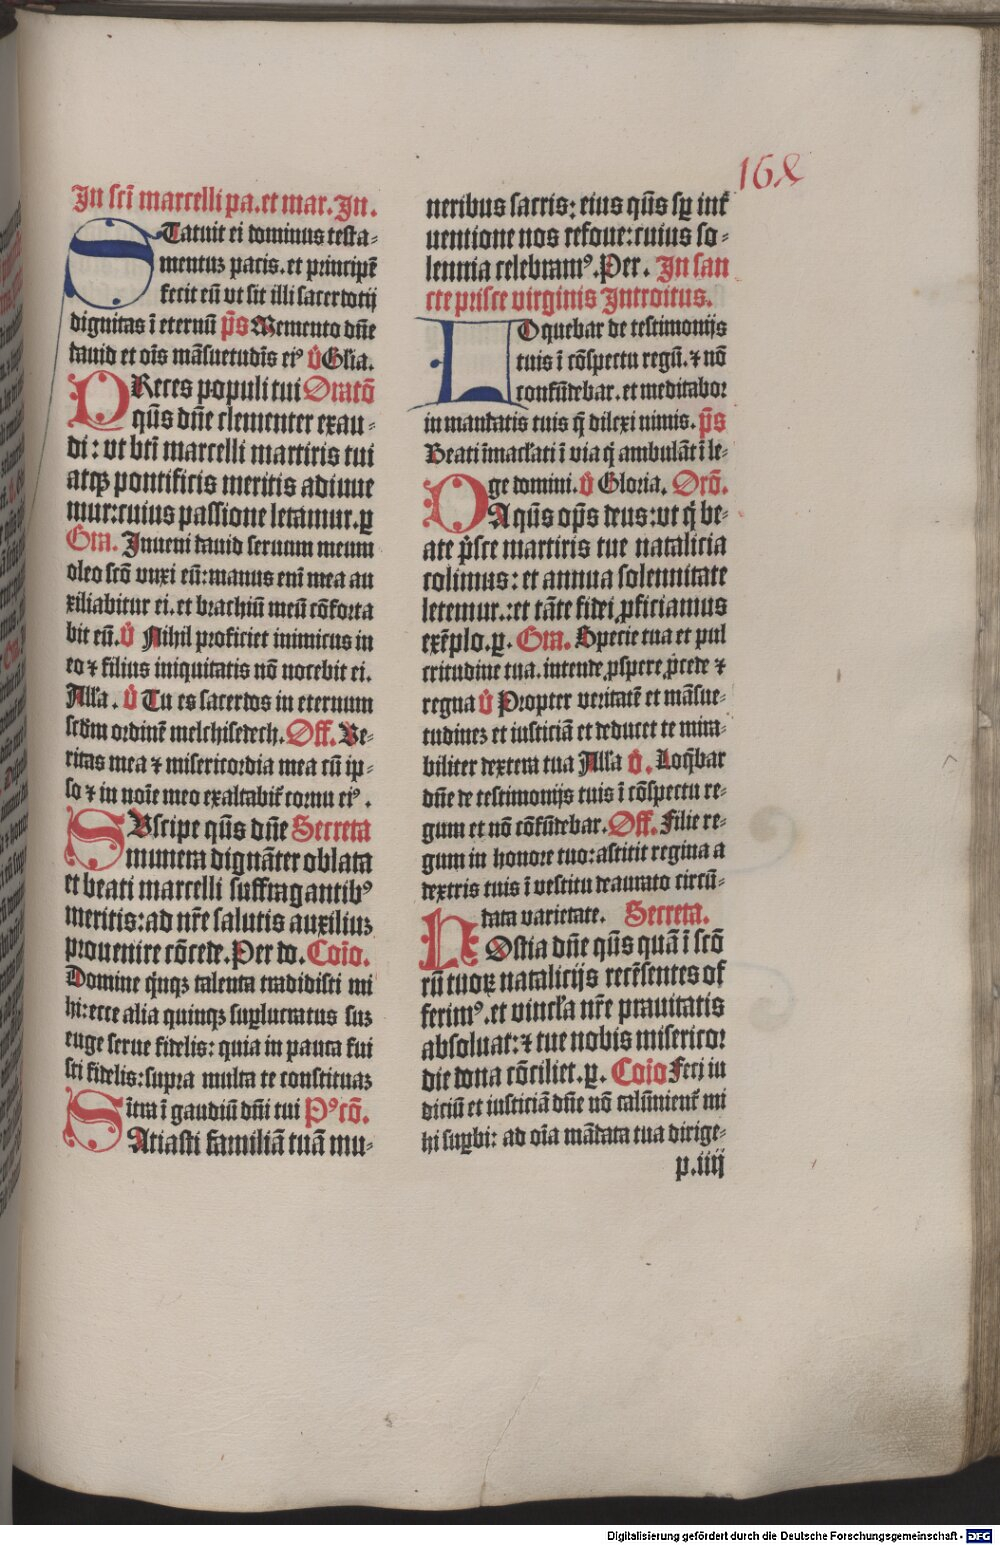 168
In scī marcelli pa.et mar. In.
STatuit ei dominus testa-
mentuꝫ pacis. et principē
fecit eū vt sit illi sacerdotij
dignitas ī eternū p̄s Memento dn̄e
dauid et oīs mās̄uetudīs eiꝰ v̇ Glīa.
PReces populi tui Oratō
qūs dn̄e clementer exau-
di: vt btī marcelli martiris tui
atqꝫ pontificis meritis adiuue
mur:cuius passione letamur. ꝑ
Gra. Inueni dauid seruum meum
oleo scō vnxi eū: manus enī mea au
xiliabitur ei. et brachiū meū cōforta
bit eū. v̇ Nihil proficiet inimicus in
eo ⁊ filius iniquitatis nō nocebit ei.
Alla. v̇ Tu es sacerdos in eternum
scd̄m ordinē melchisedech. Off. Ve-
ritas mea ⁊ misericordia mea cū ip-
so ⁊ in noīe meo exaltabit̄ cornu eiꝰ.
SVscipe qūs dn̄e Secreta
munera dignāter oblata
et beati marcelli suffragantibꝰ
meritis: ad nr̄e salutis auxiliuꝫ
prouenire cōcede. Per do. Coīo.
Domine qu̇nqꝫ talenta tradidisti mi
hi: ecce alia quinqꝫ suꝑlucratus suꝫ
euge serue fidelis: quia in pauca fui
sti fidelis: supra multa te constituaꝫ
ītra ī gaudiū dn̄i tui Pꝰcō.
SAtiasti familiā tuā mu-
neribus sacris: eius qūs sꝑ int̄
uentione nos refoue: cuius so-
lennia celebramꝰ. Per. In san
cte prisce virginis Introitus.
LOquebar de testimonijs
tuis ī cōspectu regū. ⁊ nō
confūdebar. et meditabor
in mandatis tuis q̄ dilexi nimis. p̄s
Beati īmacl̄ati ī via q̇ ambulāt ī le-
ge domini. v̇ Gloria. Orō.
DA qūs op̄s deus: vt q̇ be-
ate ṗsce martiris tue natalicia
colimus: et annua solennitate
letemur.: et tāte fidei ꝓficiamus
exēplo. ꝑ. Gra. Specie tua et pul
critudine tua. intende ꝓspere ꝓcede ⁊
regna v̇ Propter veritatē et māsue-
tudineꝫ et iusticiā et deducet te mira-
biliter dextera tua Alla v̇. Loqb̄ar
dn̄e de testimonijs tuis ī cōspectu re-
gum et nō cōfūdebar. Off. Filie re-
gum in honore tuo: astitit regina a
dextris tuis ī vestitu deaurato circū-
data varietate. Secreta.
HOstia dn̄e qūs quā ī scō
rū tuoꝝ natalicijs recēsentes of
ferimꝰ. et vincl̄a nr̄e prauitatis
absoluat: ⁊ tue nobis misericor
die dona cōciliet. ꝑ. Coīo Feci iu
diciū et iusticiā dn̄e nō calūnient̄ mi
hi suꝑbi: ad oīa mādata tua dirige-
p.iiij
Digitalisierung gefördert durch die Deutsche Forschungsgemeinschaft - DFG